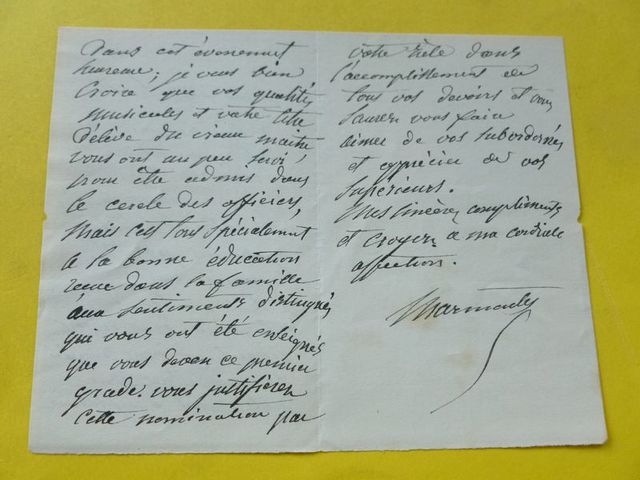 Dans cet évènement
heureux, je veux bien
croire que vos qualités
musicales et votre titre
d'élève du vieux maître
vous ont un peu servi
pour être admis dans
le cercle des officiers,
Mais c'est tout spécialement
à la bonne éducation
reçue dans la famille
aux sentiments distingués
qui vous ont été enseignés
que vous devez ce premier
grade. vous justifierez
cette nomination par
votre zèle dans
l'accomplissement de
tous vos devoirs et vous
saurez vous faire
aimer de vos subordonnés
et apprécier de vos
supérieurs.
Mes sincères compliments
et croyez à ma cordiale
affection.
Marmontel